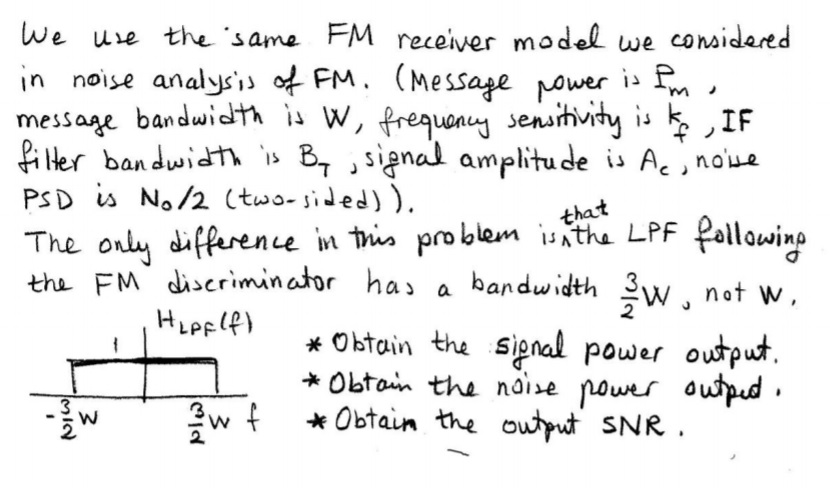 We use the same FM receiver model we considered
in noise analysis of FM. (Message power is Pm,
message bandwidth is W, frequency sensitivity is kf, IF
filter bandwidth is BT, signal amplitude is Ac, noise
PSD is No/2 (two-sided)).
The only difference in this problem is that the LPF following
the FM discriminator has a bandwidth 3/2 W, not W.
HLPF(f)
1
-3/2 W 3/2 W f
* Obtain the signal power output.
* Obtain the noise power output.
* Obtain the output SNR.